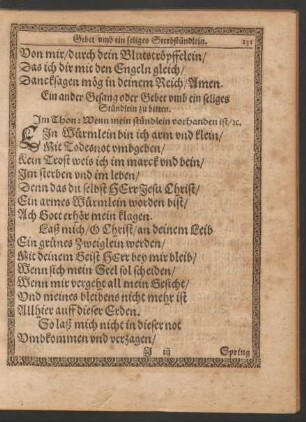 Gebet vmb ein seliges Sterbstündlein. 231
Von mir/ durch dein Blutströpffelein/
Das ich dir mit den Engeln gleich/
Dancksagen mög in deinem Reich/ Amen.
Ein ander Gesang oder Gebet vmb ein seliges
Stündlein zu bitten.
Im Thon: Wenn mein stündlein vorhanden ist/ ꝛc.
EIn Würmlein bin ich arm vnd klein/
Mit Todesnot vmbgeben/
Kein Trost weis ich im marck vnd bein/
Im sterben vnd im leben/
Denn das du selbst HErr Jesu Christ/
Ein armes Würmlein worden bist/
Ach Gott erhör mein klagen.
Laß mich/ O Christ/ an deinem Leib
Ein grünes Zweiglein werden/
Mit deinem Geist HErr bey mir bleib/
Wenn sich mein Seel sol scheiden/
Wenn mir vergeht all mein Gesicht/
Vnd meines bleibens nicht mehr ist
Allhier auff dieser Erden.
So laß mich nicht in dieser not
Vmbkommen vnd verzagen/
J iij Spring